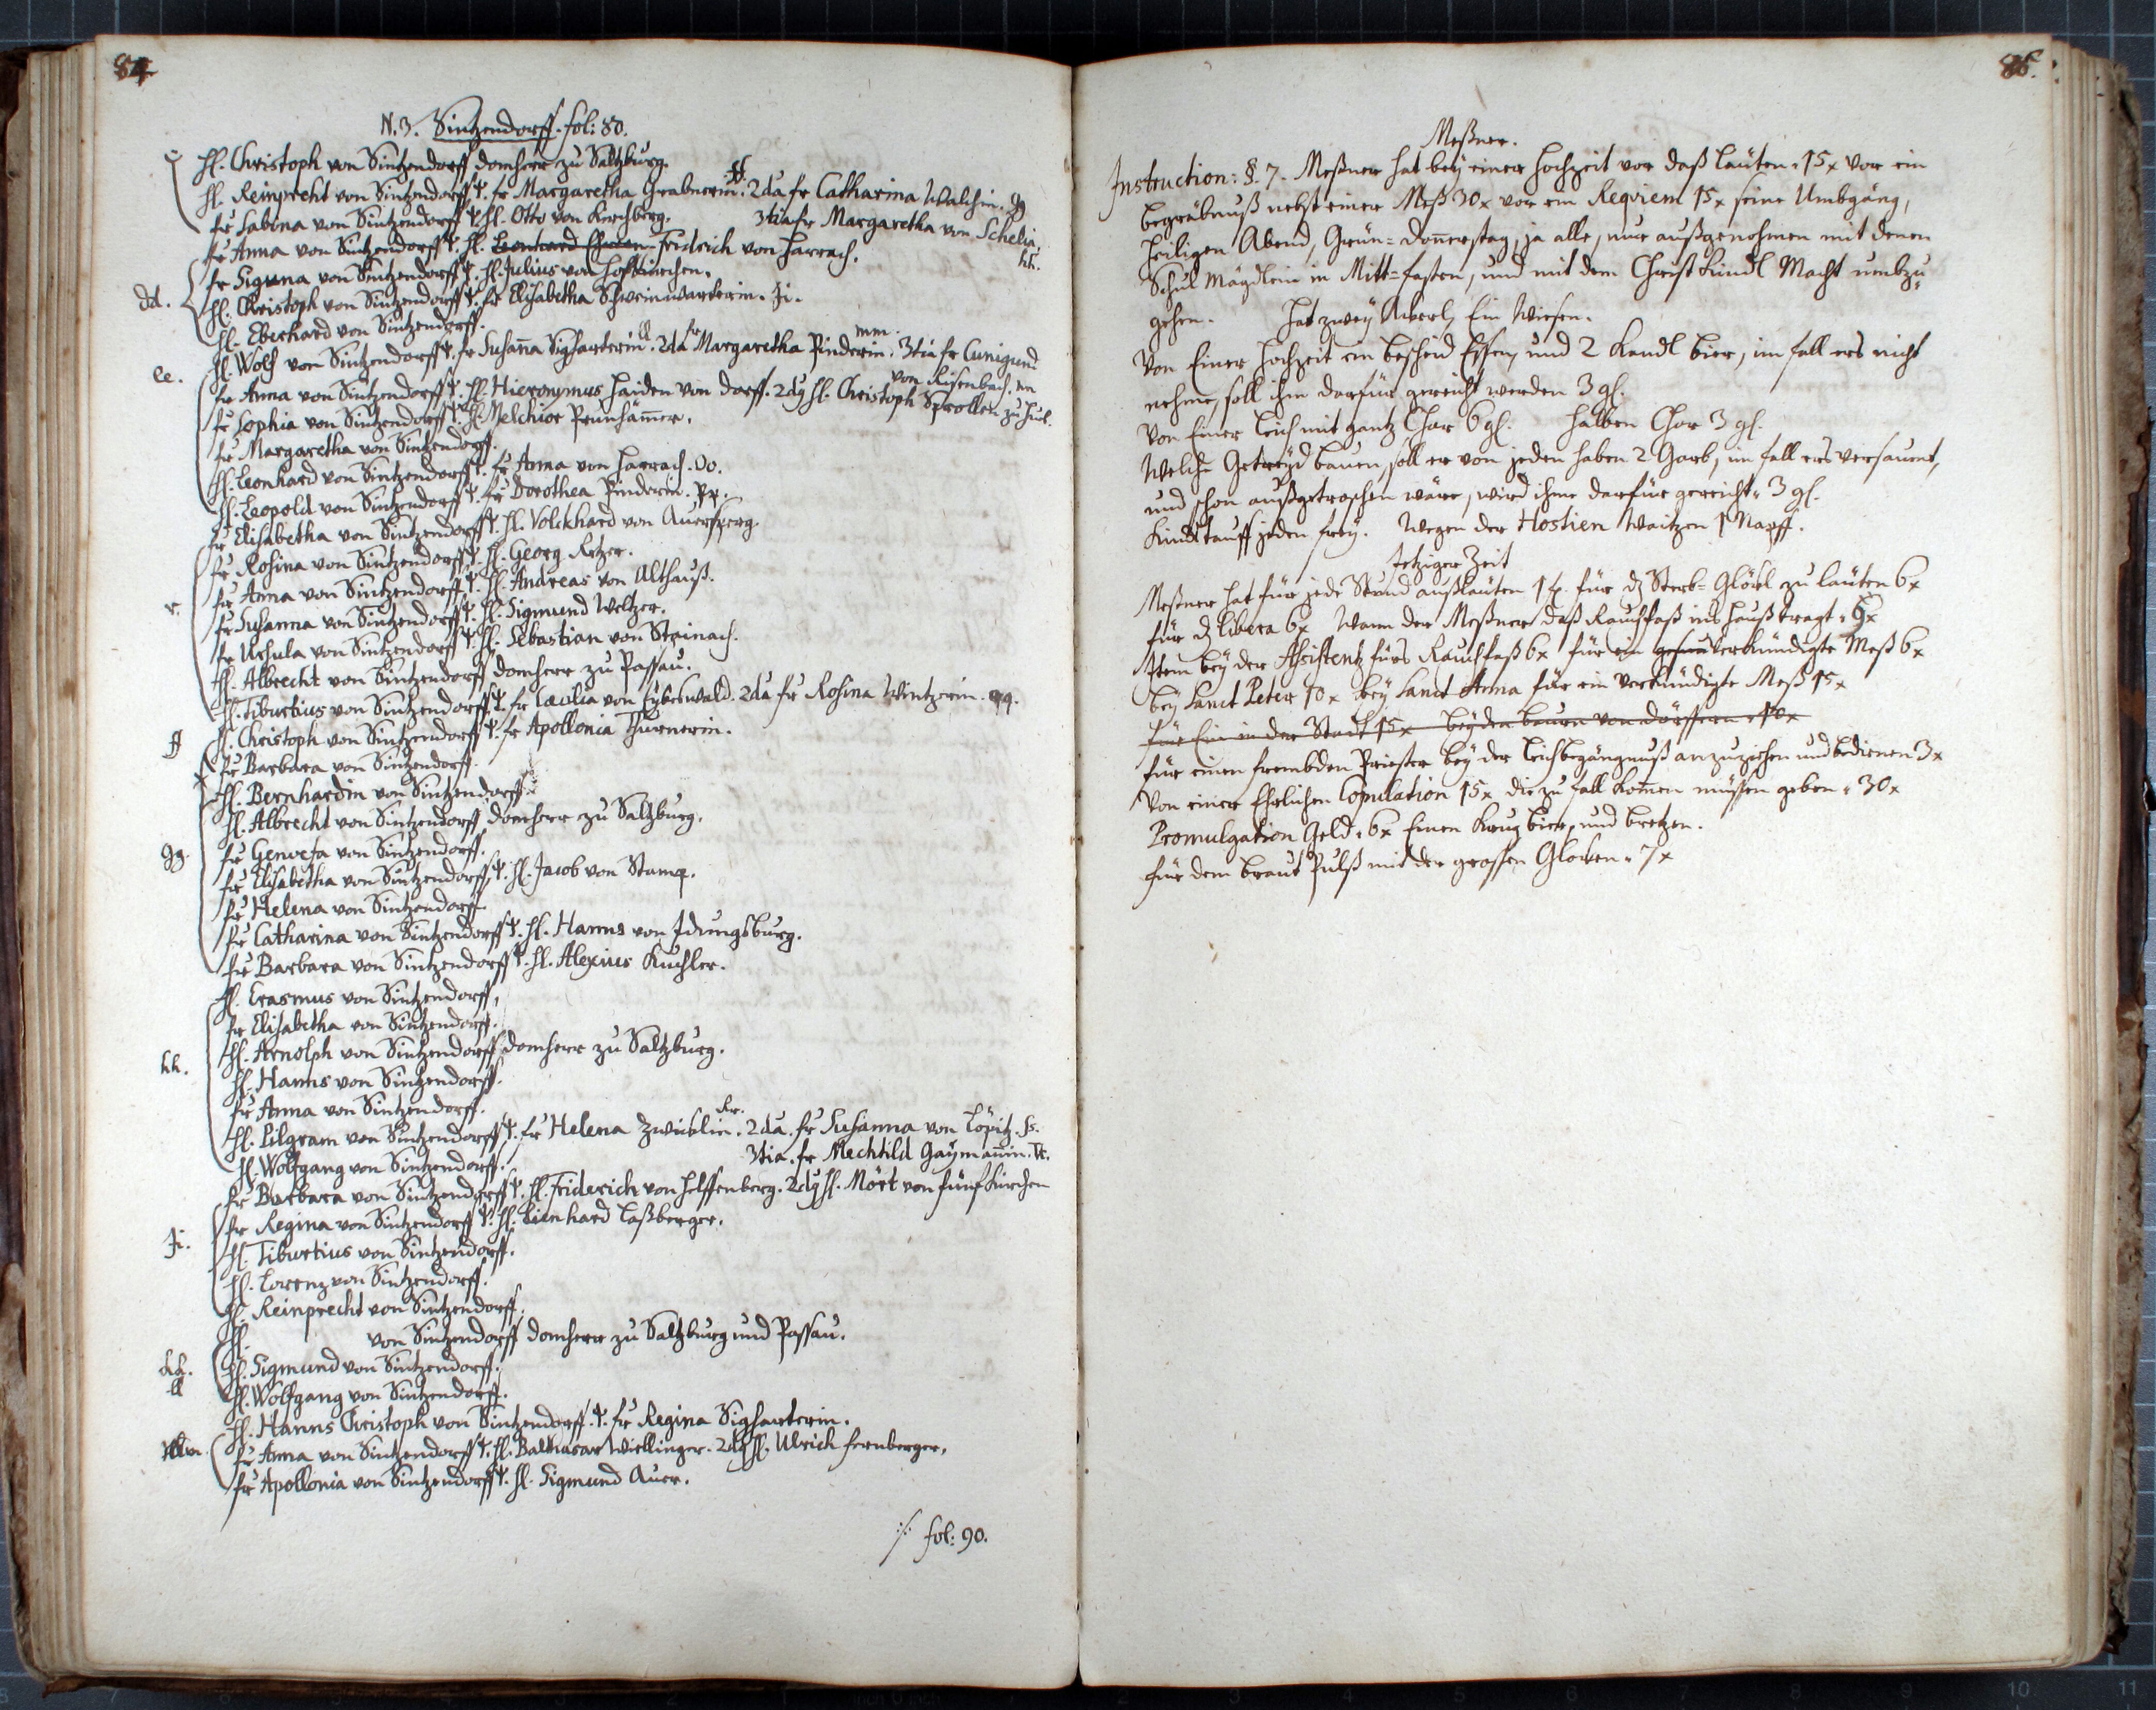 84
N. 3. Sintzendorff. fol: 80.
H. Christoph von Sintzendorff domherr zu Saltzburg.
H. Reinprecht von Sintzendorff. fr Margaretha Grabnerin. ff. 2da fr Catharina Walchin. gg
fr Sabina von Sintzendorff. H. Otto von Kirchberg. 3tia fr Margaretha von Schelia. hh.
fr Anna von Sintzendorff. H. Leonhard Fridrich von Harrach.
fr Siguna von Sintzendorff. H. Julius von Hofkirchen.
dd. H. Christoph von Sintzendorff. fr Elisabetha Schweinwarterin. Ji.
H. Eberhard von Sintzendorff.
H. Wolf von Sintzendorff. fr Susan̄a Sigharterin. ll. 2da fr Margaretha Pinderin. mm. 3tia fr Cunigund von Risenbach. nn
ee. fr Anna von Sintzendorff. H. Hieronymus Haiden von Dorff. 2dꝯ H. Christoph Sprollen zu
fr Sophia von Sintzendorff H. Melchior Prunhām̄er.
fr Margaretha von Sintzendorff.
H. Leonhard von Sintzendorff. fr Anna von Harrach. Oo.
H. Leopold von Sintzendorff. fr Dorothea Pinderin. Pp.
fr Elisabetha von Sintzendorff. H. Volckhard von Auersperg.
fr Rosina von Sintzendorff. H. Georg Retzer.
fr Anna von Sintzendorff. H. Andreas von Althauß.
r. fr Susanna von Sintzendorff. H. Sigmund Weltzer.
fr Ursula von Sintzendorff. H. Sebastian von Stainach.
H. Albrecht von Sintzendorff domherr zu Passau.
H. Tiburtius von Sintzendorff. fr Cæcilia von Eyberswald. 2da fr Rosina Wintzerin. qq.
ff H. Christoph von Sintzendorff. fr Apollonia Thurnerin.
fr Barbara von Sintzendorff.
H. Bernhardin von Sintzendorff.
H. Albrecht von Sintzendorff domherr zu Saltzburg.
gg. fr Genovefa von Sintzendorff.
fr Elisabetha von Sintzendorff. H. Jacob von Stamp.
fr Helena von Sintzendorff.
fr Catharina von Sintzendorff. H. Hanns von Idungsburg.
fr Barbara von Sintzendorff. H. Alexius Kuchler.
H. Erasmus von Sintzendorff,
fr Elisabetha von Sintzendorff.
hh. H. Arnolph von Sintzendorff domherr zu Saltzburg.
H. Hanns von Sintzendorff.
fr Anna von Sintzendorff.
H. Pilgram von Sintzendorff. fr Helena Zwicklin. Rr. 2da. fr Susanna von Töpitz. Ss.
H. Wolfgang von Sintzendorff. 3tia. fr Mechtild Gaymān̄in. Tt.
fr Barbara von Sintzendorff. H. Friderich von Helffenberg. 2dꝯ H. Mört von Fünfkirchen
Ji. fr Regina von Sintzendorff. H. Lienhard Laßberger.
H. Tiburtius von Sintzendorff.
H. Lorenz von Sintzendorff.
H. Reinprecht von Sintzendorff.
H. von Sintzendorff domherr zu Saltzburg und Passau.
kk. H. Sigmund von Sintzendorff.
ll H. Wolfgang von Sintzendorff.
H. Hanns Christoph von Sintzendorff. fr Regina Sigharterin.
mm. fr Anna von Sintzendorff. H. Balthasar Wiellinger. 2dꝯ H. Ulrich Fernberger.
fr Apollonia von Sintzendorff. H. Sigmund Auer.
./. fol: 90.
Meßner.
Instruction: §. 7. Meßner hat bey einer Hochzeit vor daß Läuten 15x vor ein
Begräbnuß nebst einer Meß 30x vor ein Reqviem 15x seine Umbgäng,
Heiligen Abend, Grün-Don̄erstag, ja alle, nur außgenohmen mit denen
Schul Mägdlein in Mitt-Fasten, und mit dem Christ Kindl Nacht umbzu-
gehen. Hat zwey Äkerl, Ein Wiesen.
Von Einer Hochzeit ein bescheid Essen, und 2 Kandl bier, im fall ers nicht
nehme, soll ihm darfür gereicht werden 3 gl.
Von Einer Leich mit gantz Chor 6 gl. Halben Chor 3 gl.
Welche Getreyd bauen, soll er von jeden haben 2 Garb, im fall ers versaumt,
und schon außgetroschen wäre, wird ihme darfür gereicht 3 gl.
Kindstauff jeden frey. Wegen der Hostien Waitzen 1 Napff.
Jetziger Zeit
Meßner hat für jede Stund außläuten 1 f. für dz Sterb-Glökl zu läuten 6x
für dz Libera 6x Wann der Meßner daß Rauchfaß ins Hauß tragt 6x
Item bey der Assistentz fürs Rauchfaß 6x für ein verkündigte Meß 6x
bey Sanct Peter 10x bey Sanct Anna für ein verkündigte Meß 15x
für Ein in der Stadt 15x bey den bauen von dörffern 10x
für einen frembden Priester bey der Leichbegängnuß anzuziehen und bedienen 3x
Von einer Ehrlichen Copulation 15x die zu fall kom̄en müssen geben 30x
Promulgation Geld 6x Einen Krug bier, und bretzen.
für dem braut Pulß mit der grossen Glocken 7x